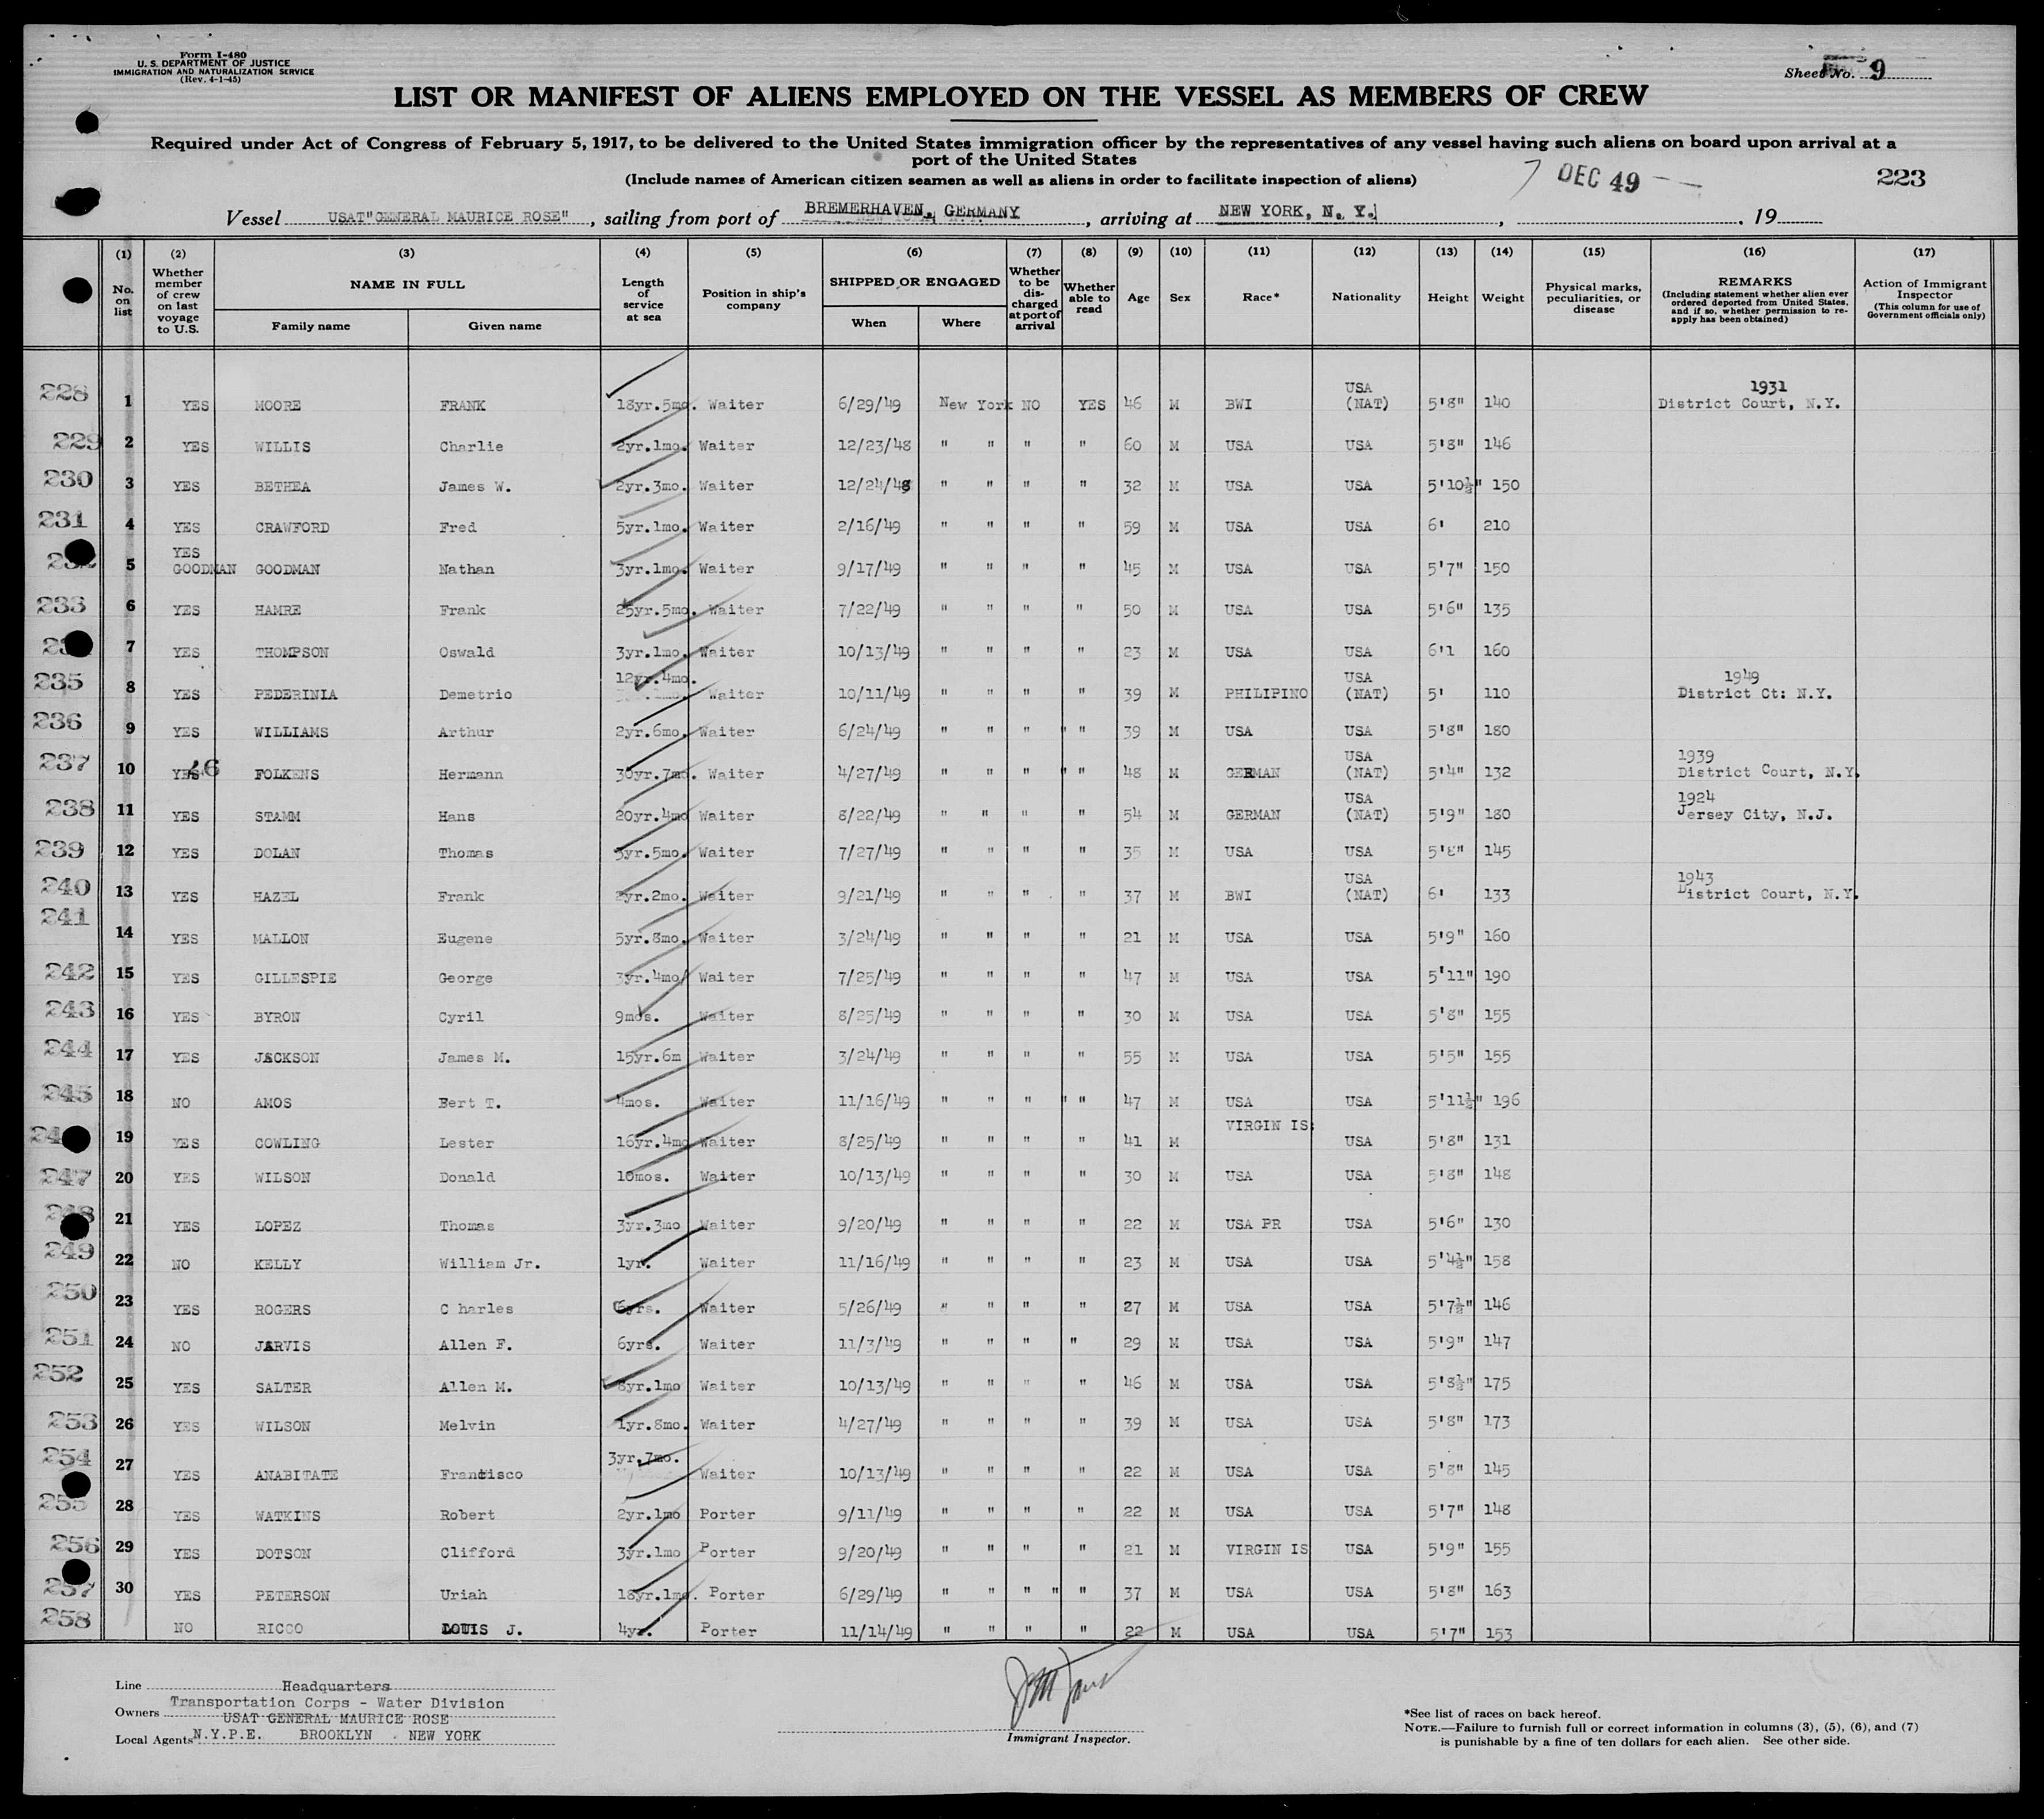 Form I-480
U. S. DEPARTMENT OF JUSTICE
IMMIGRATION AND NATURALIZATION SERVICE
(Rev. 4-1-45)
Sheet No. 9
LIST OR MANIFEST OF ALIENS EMPLOYED ON THE VESSEL AS MEMBERS OF CREW
Required under Act of Congress of February 5, 1917, to be delivered to the United States immigration officer by the representatives of any vessel having such aliens on board upon arrival at a
port of the United States
(Include names of American citizen seamen as well as aliens in order to facilitate inspection of aliens)
7 DEC 49
223
Vessel USAT"GENERAL MAURICE ROSE", sailing from port of BREMERHAVEN, GERMANY, arriving at NEW YORK, N. Y., 19
(1) No. on list
(2) Whether member of crew on last voyage to U.S.
(3) NAME IN FULL Family name Given name
(4) Length of service at sea
(5) Position in ship's company
(6) SHIPPED OR ENGAGED When Where
(7) Whether to be discharged at port of arrival
(8) Whether able to read
(9) Age
(10) Sex
(11) Race*
(12) Nationality
(13) Height
(14) Weight
(15) Physical marks, peculiarities, or disease
(16) REMARKS (Including statement whether alien ever ordered deported from United States, and if so, whether permission to reapply has been obtained)
(17) Action of Immigrant Inspector (This column for use of Government officials only)
228 1 YES MOORE FRANK 18yr.5mo. Waiter 6/29/49 New York NO YES 46 M BWI USA (NAT) 5'8" 140 1931 District Court, N.Y.
229 2 YES WILLIS Charlie 2yr.1mo. Waiter 12/23/48 " " " " 60 M USA USA 5'8" 146
230 3 YES BETHEA James W. 2yr.3mo. Waiter 12/24/48 " " " " 32 M USA USA 5'10½" 150
231 4 YES CRAWFORD Fred 5yr.1mo. Waiter 2/16/49 " " " " 59 M USA USA 6' 210
5 YES GOODMAN GOODMAN Nathan 3yr.1mo. Waiter 9/17/49 " " " " 45 M USA USA 5'7" 150
233 6 YES HAMRE Frank 25yr.5mo. Waiter 7/22/49 " " " " 50 M USA USA 5'6" 135
7 YES THOMPSON Oswald 3yr.1mo. Waiter 10/13/49 " " " " 23 M USA USA 6'1 160
235 8 YES PEDERINIA Demetrio 12yr.4mo. Waiter 10/11/49 " " " " 39 M PHILIPINO USA (NAT) 5' 110 1949 District Ct: N.Y.
236 9 YES WILLIAMS Arthur 2yr.6mo. Waiter 6/24/49 " " " " " 39 M USA USA 5'8" 180
237 10 YES FOLKENS Hermann 30yr.7mo. Waiter 4/27/49 " " " " " 48 M GERMAN USA (NAT) 5'4" 132 1939 District Court, N.Y.
238 11 YES STAMM Hans 20yr.4mo Waiter 8/22/49 " " " " 54 M GERMAN USA (NAT) 5'9" 180 1924 Jersey City, N.J.
239 12 YES DOLAN Thomas 5yr.5mo. Waiter 7/27/49 " " " " 35 M USA USA 5'8" 145
240 13 YES HAZEL Frank 2yr.2mo. Waiter 9/21/49 " " " " 37 M BWI USA (NAT) 6' 133 1943 District Court, N.Y.
241 14 YES MALLON Eugene 5yr.8mo. Waiter 3/24/49 " " " " 21 M USA USA 5'9" 160
242 15 YES GILLESPIE George 3yr.4mo Waiter 7/25/49 " " " " 47 M USA USA 5'11" 190
243 16 YES BYRON Cyril 9mos. Waiter 8/25/49 " " " " 30 M USA USA 5'8" 155
244 17 YES JACKSON James M. 15yr.6m Waiter 3/24/49 " " " " 55 M USA USA 5'5" 155
245 18 NO AMOS Bert T. 4mos. Waiter 11/16/49 " " " " " 47 M USA USA 5'11½" 196
19 YES COWLING Lester 16yr.4mo Waiter 8/25/49 " " " " 41 M VIRGIN IS. USA 5'8" 131
247 20 YES WILSON Donald 10mos. Waiter 10/13/49 " " " " 30 M USA USA 5'8" 148
248 21 YES LOPEZ Thomas 3yr.3mo Waiter 9/20/49 " " " " 22 M USA PR USA 5'6" 130
249 22 NO KELLY William Jr. 1yr. Waiter 11/16/49 " " " " 23 M USA USA 5'4½" 158
250 23 YES ROGERS C harles 6yrs. Waiter 5/26/49 " " " " 27 M USA USA 5'7½" 146
251 24 NO JARVIS Allen F. 6yrs. Waiter 11/3/49 " " " " 29 M USA USA 5'9" 147
252 25 YES SALTER Allen M. 8yr.1mo Waiter 10/13/49 " " " " 46 M USA USA 5'8½" 175
253 26 YES WILSON Melvin 1yr.8mo. Waiter 4/27/49 " " " " 39 M USA USA 5'8" 173
254 27 YES ANABITATE Francisco 3yr.7mo. Waiter 10/13/49 " " " " 22 M USA USA 5'8" 145
255 28 YES WATKINS Robert 2yr.1mo Porter 9/11/49 " " " " 22 M USA USA 5'7" 148
256 29 YES DOTSON Clifford 3yr.1mo Porter 9/20/49 " " " " 21 M VIRGIN IS USA 5'9" 155
257 30 YES PETERSON Uriah 18yr.1mo. Porter 6/29/49 " " " " " 37 M USA USA 5'8" 163
258 NO RICCO LOUIS J. 4yr. Porter 11/14/49 " " " " 22 M USA USA 5'7" 153
Line Headquarters
Owners Transportation Corps - Water Division
USAT GENERAL MAURICE ROSE
Local Agents N.Y.P.E. BROOKLYN NEW YORK
Immigrant Inspector.
*See list of races on back hereof.
NOTE.—Failure to furnish full or correct information in columns (3), (5), (6), and (7)
is punishable by a fine of ten dollars for each alien. See other side.